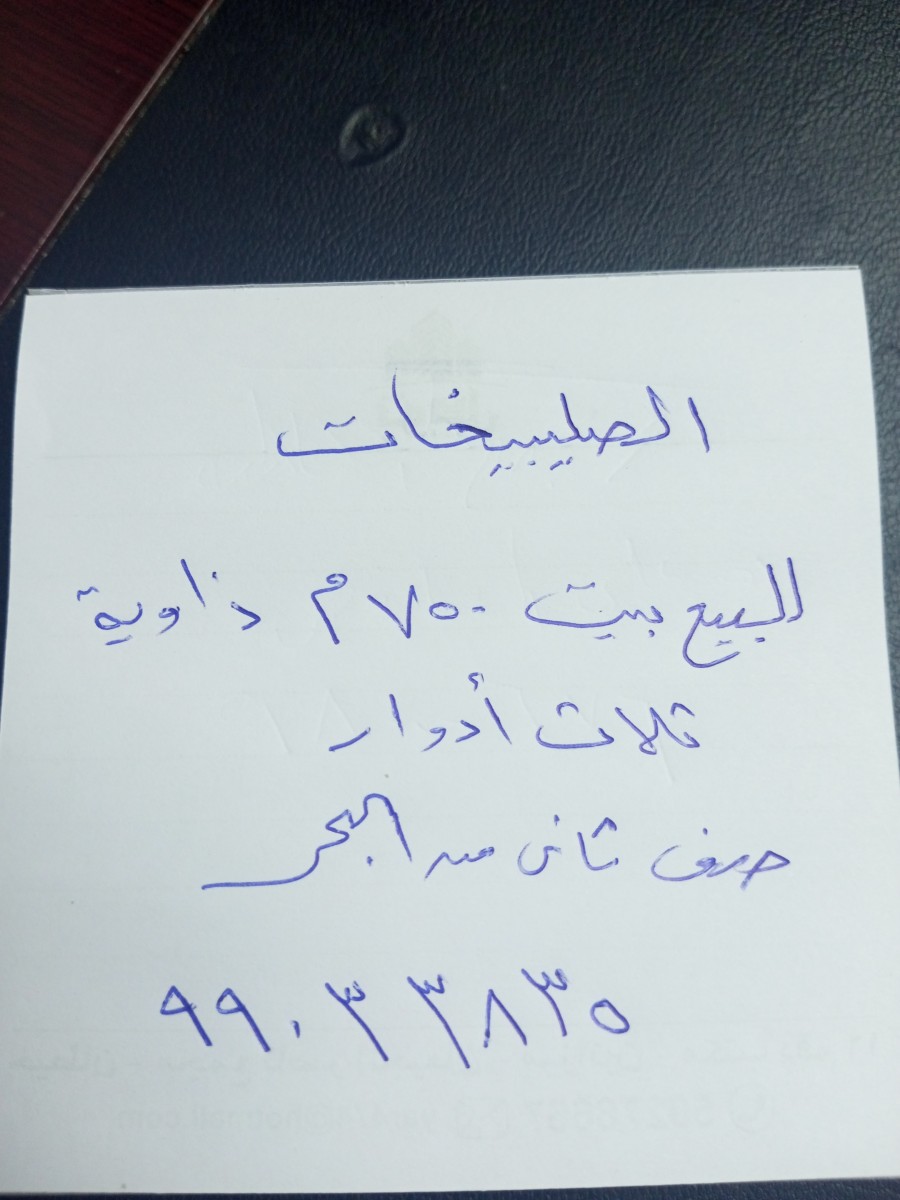 الصليبيخات
للبيع بيت ٧٥٠ م زاوية
ثلاث أدوار
صف ثانى من البحر
٩٩٠٣٣٨٣٥